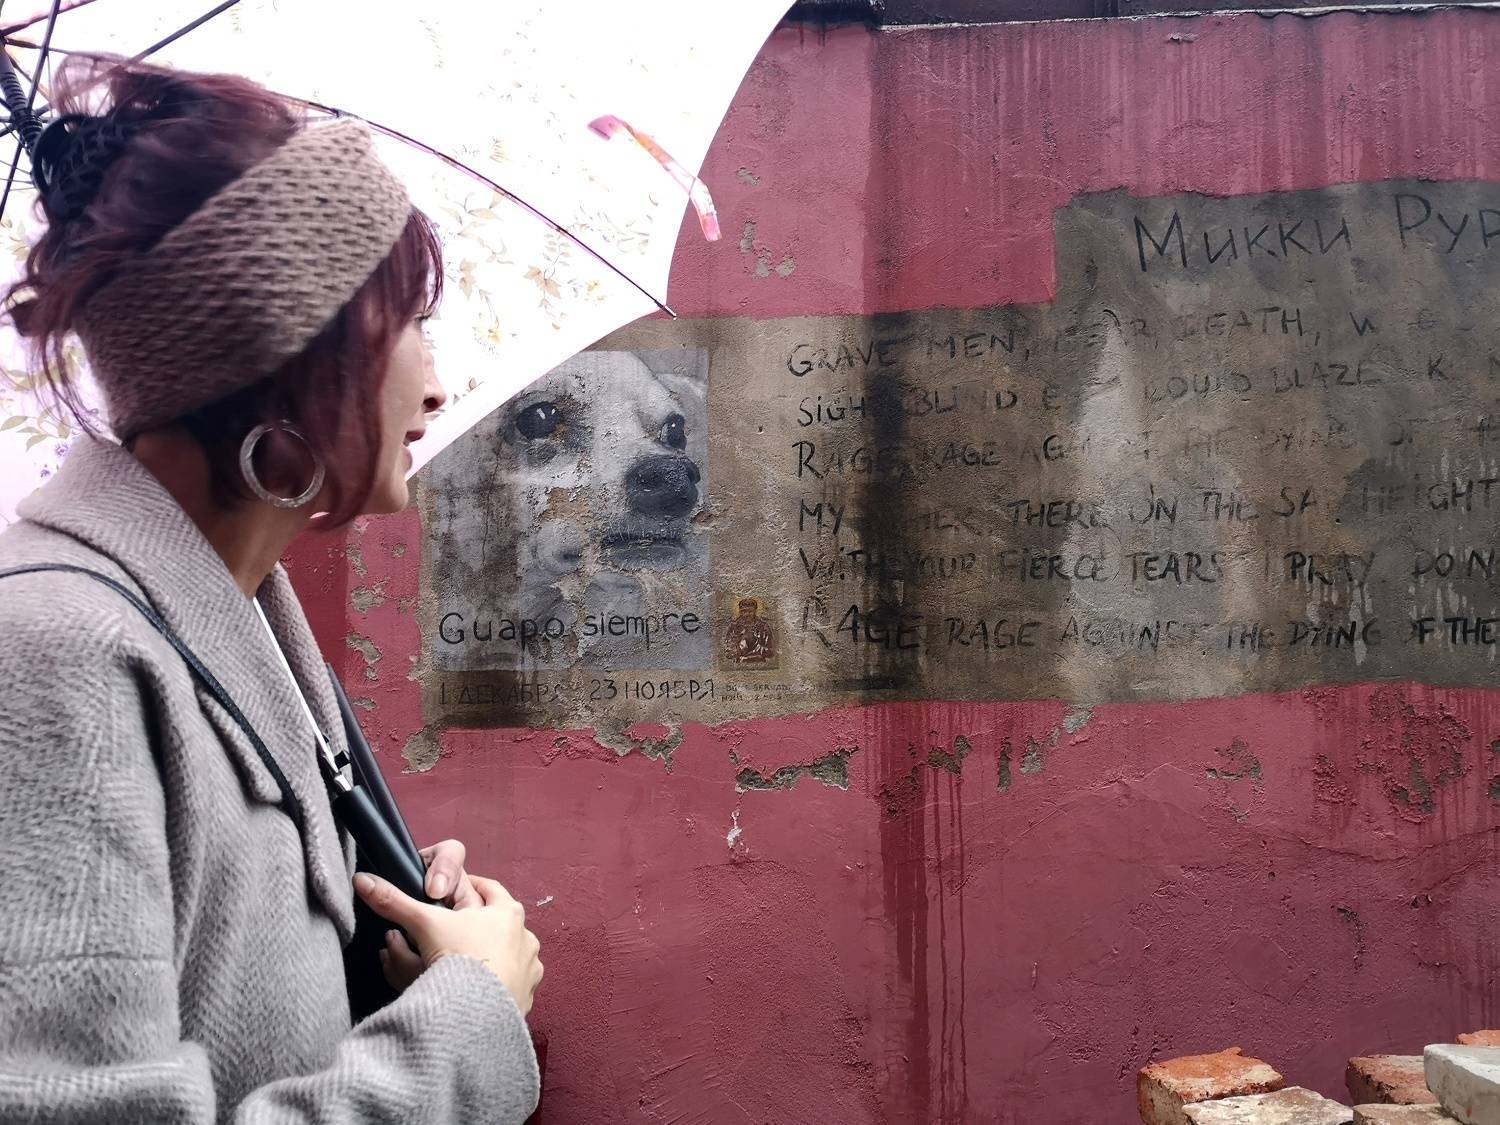 Микки Рур
GRAVE MEN, NEAR DEATH, W
SIGH BLIND E COULD BLAZE
RAGE, RAGE AGAINST THE DYING OF THE
MY THERE ON THE SAD HEIGHT
WITH YOUR FIERCE TEARS I PRAY. DO NO
RAGE, RAGE AGAINST THE DYING OF THE
Guapo siempre
1 ДЕКАБРЯ 23 НОЯБРЯ